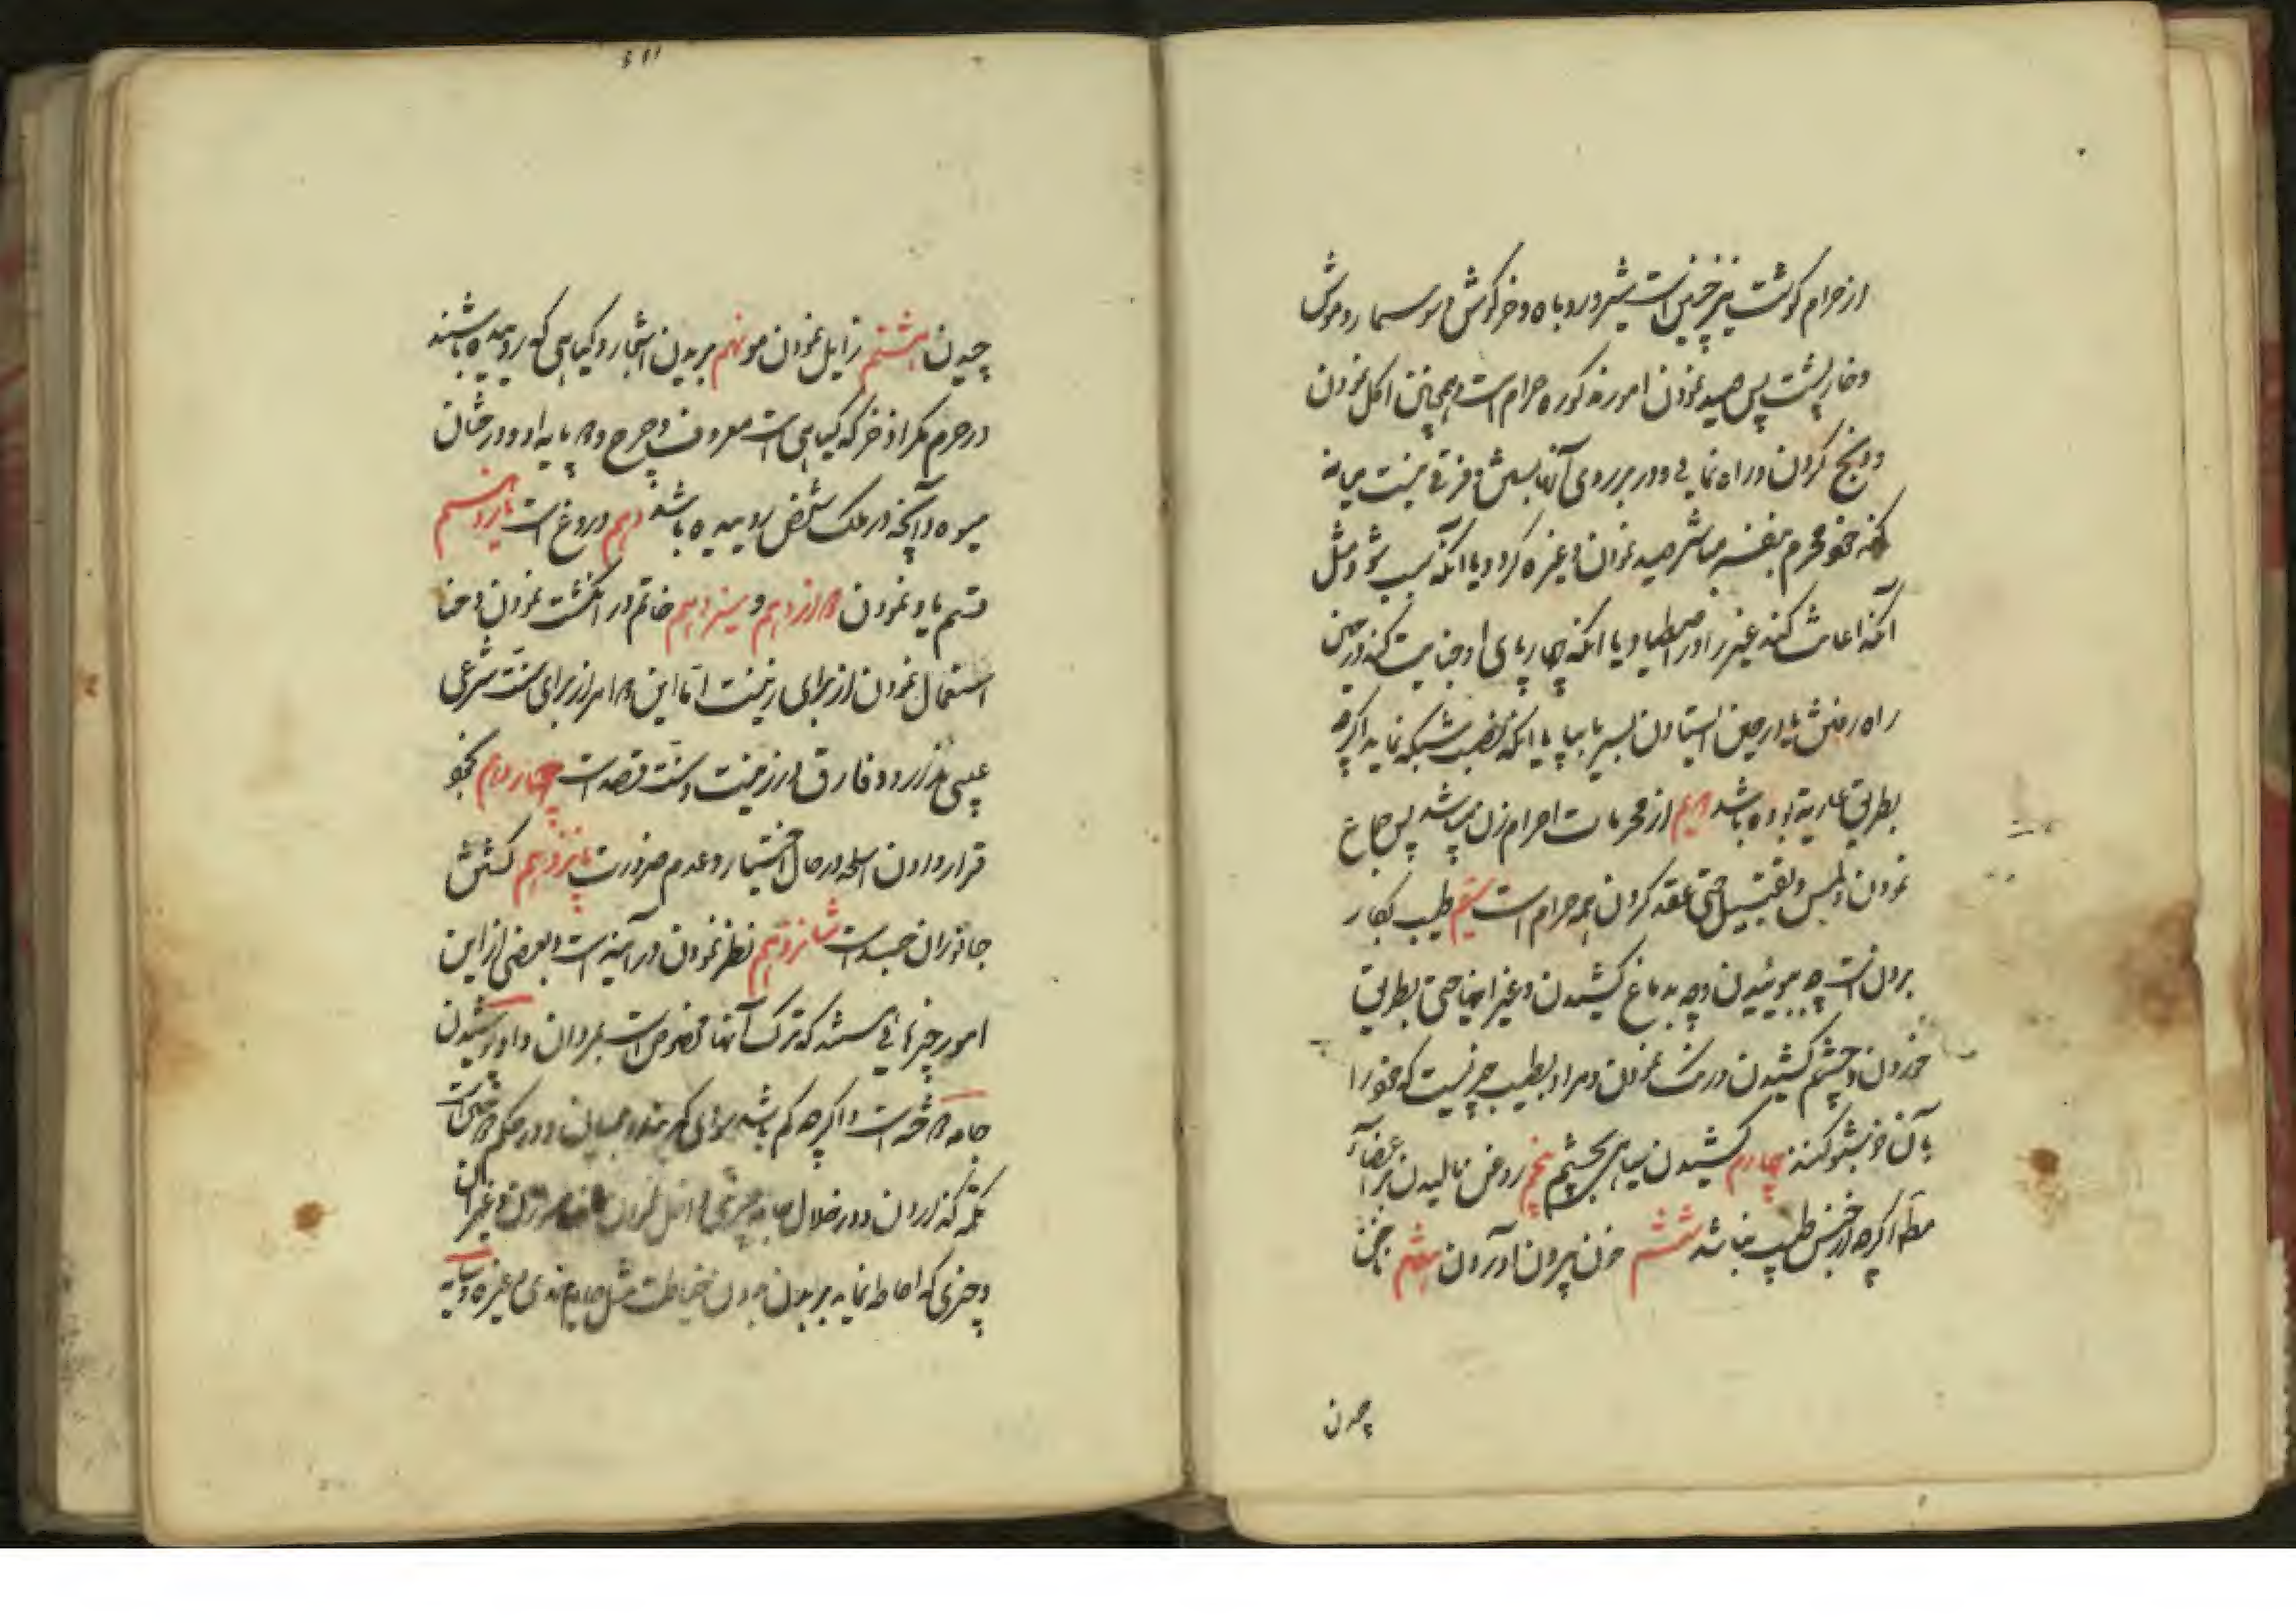 از حرام گوشت نیز چنین است شیر و روباه و خرگوش و سوسمار و موش
و خارپشت پس صید نمودن امور مذکوره حرام است و همچنین اکل نمودن
و ذبح کردن و راه نمائی و در بر روی آنها بستن و فرقی نیست میانه
آنکه خود محرم بنفسه مباشر صید نمودن و غیره گردد یا آنکه سبب شود مثل
آنکه اعانت کند غیر را در اصطیاد یا آنکه چهارپای او جنایت کند در حین
راه رفتنش یا در حین ایستادن بسر یا بپا یا آنکه نصب شبکه نماید اگرچه
بطریق عاریة بوده باشد دویم از محرمات احرام زن میباشد پس جماع
نمودن و لمس و تقبیل حتی عقد کردن همه حرام است سیم طیب بکار
بردن است چه بوئیدن و چه بدماغ کشیدن و غیر اینها حتی بطریق
خوردن و بچشم کشیدن و رنگ نمودن و مراد بطیب چیزیست که خود را
بآن خوشبو کنند چهارم کشیدن سیاهی بچشم پنجم روغن مالیدن بر اعضآء
مطلقا اگرچه از جنس طیب نباشد ششم خون بیرون آوردن هفتم ناخن
چیدن
چیدن هشتم زایل نمودن مو نهم بریدن اشجار و گیاهی که روئیده باشند
در حرم مگر اذخر که گیاهی است معروف و چرخ دو پایه او و درختان
میوه و آنچه در ملک شخص روییده باشد دهم دروغ است یازدهم
قسم یاد نمودن دوازدهم و سیزدهم خاتم در انگشت نمودن و حنا
استعمال نمودن از برای زینت اما این دو امر از برای سنت شرعی
عیبی ندارد و فارق در زینت و سنت قصد است چهاردهم بخود
قرار دادن اسلحه در حال اختیار و عدم ضرورت پانزدهم کشتن
جانوران جسد است شانزدهم نظر نمودن در آینه است و بعضی از این
امور چیزهائی هستند که ترک آنها مخصوص است بمردان و او پوشیدن
جامه دوخته است و اگرچه کم باشد سوای کمربند و همیان و در حکم دوختن است
تکمه گذاردن و در خلال جامه چیزی داخل کردن
و چیزی که احاطه نماید بر بدن بدون خیاطت مثل جامه نمدی و غیره و سایه